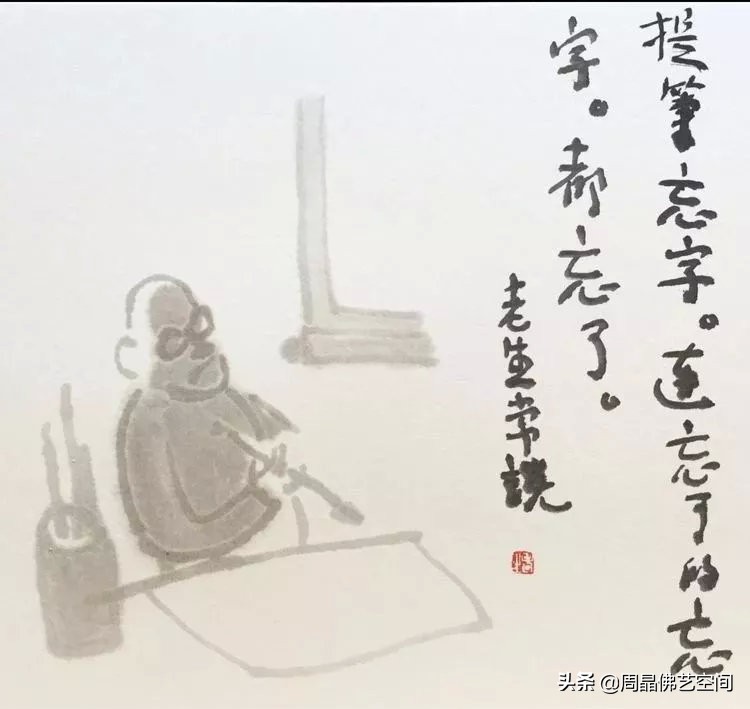 提筆忘字。連忘了的忘
字。都忘了。
老生常
头条 @周晶佛艺空间